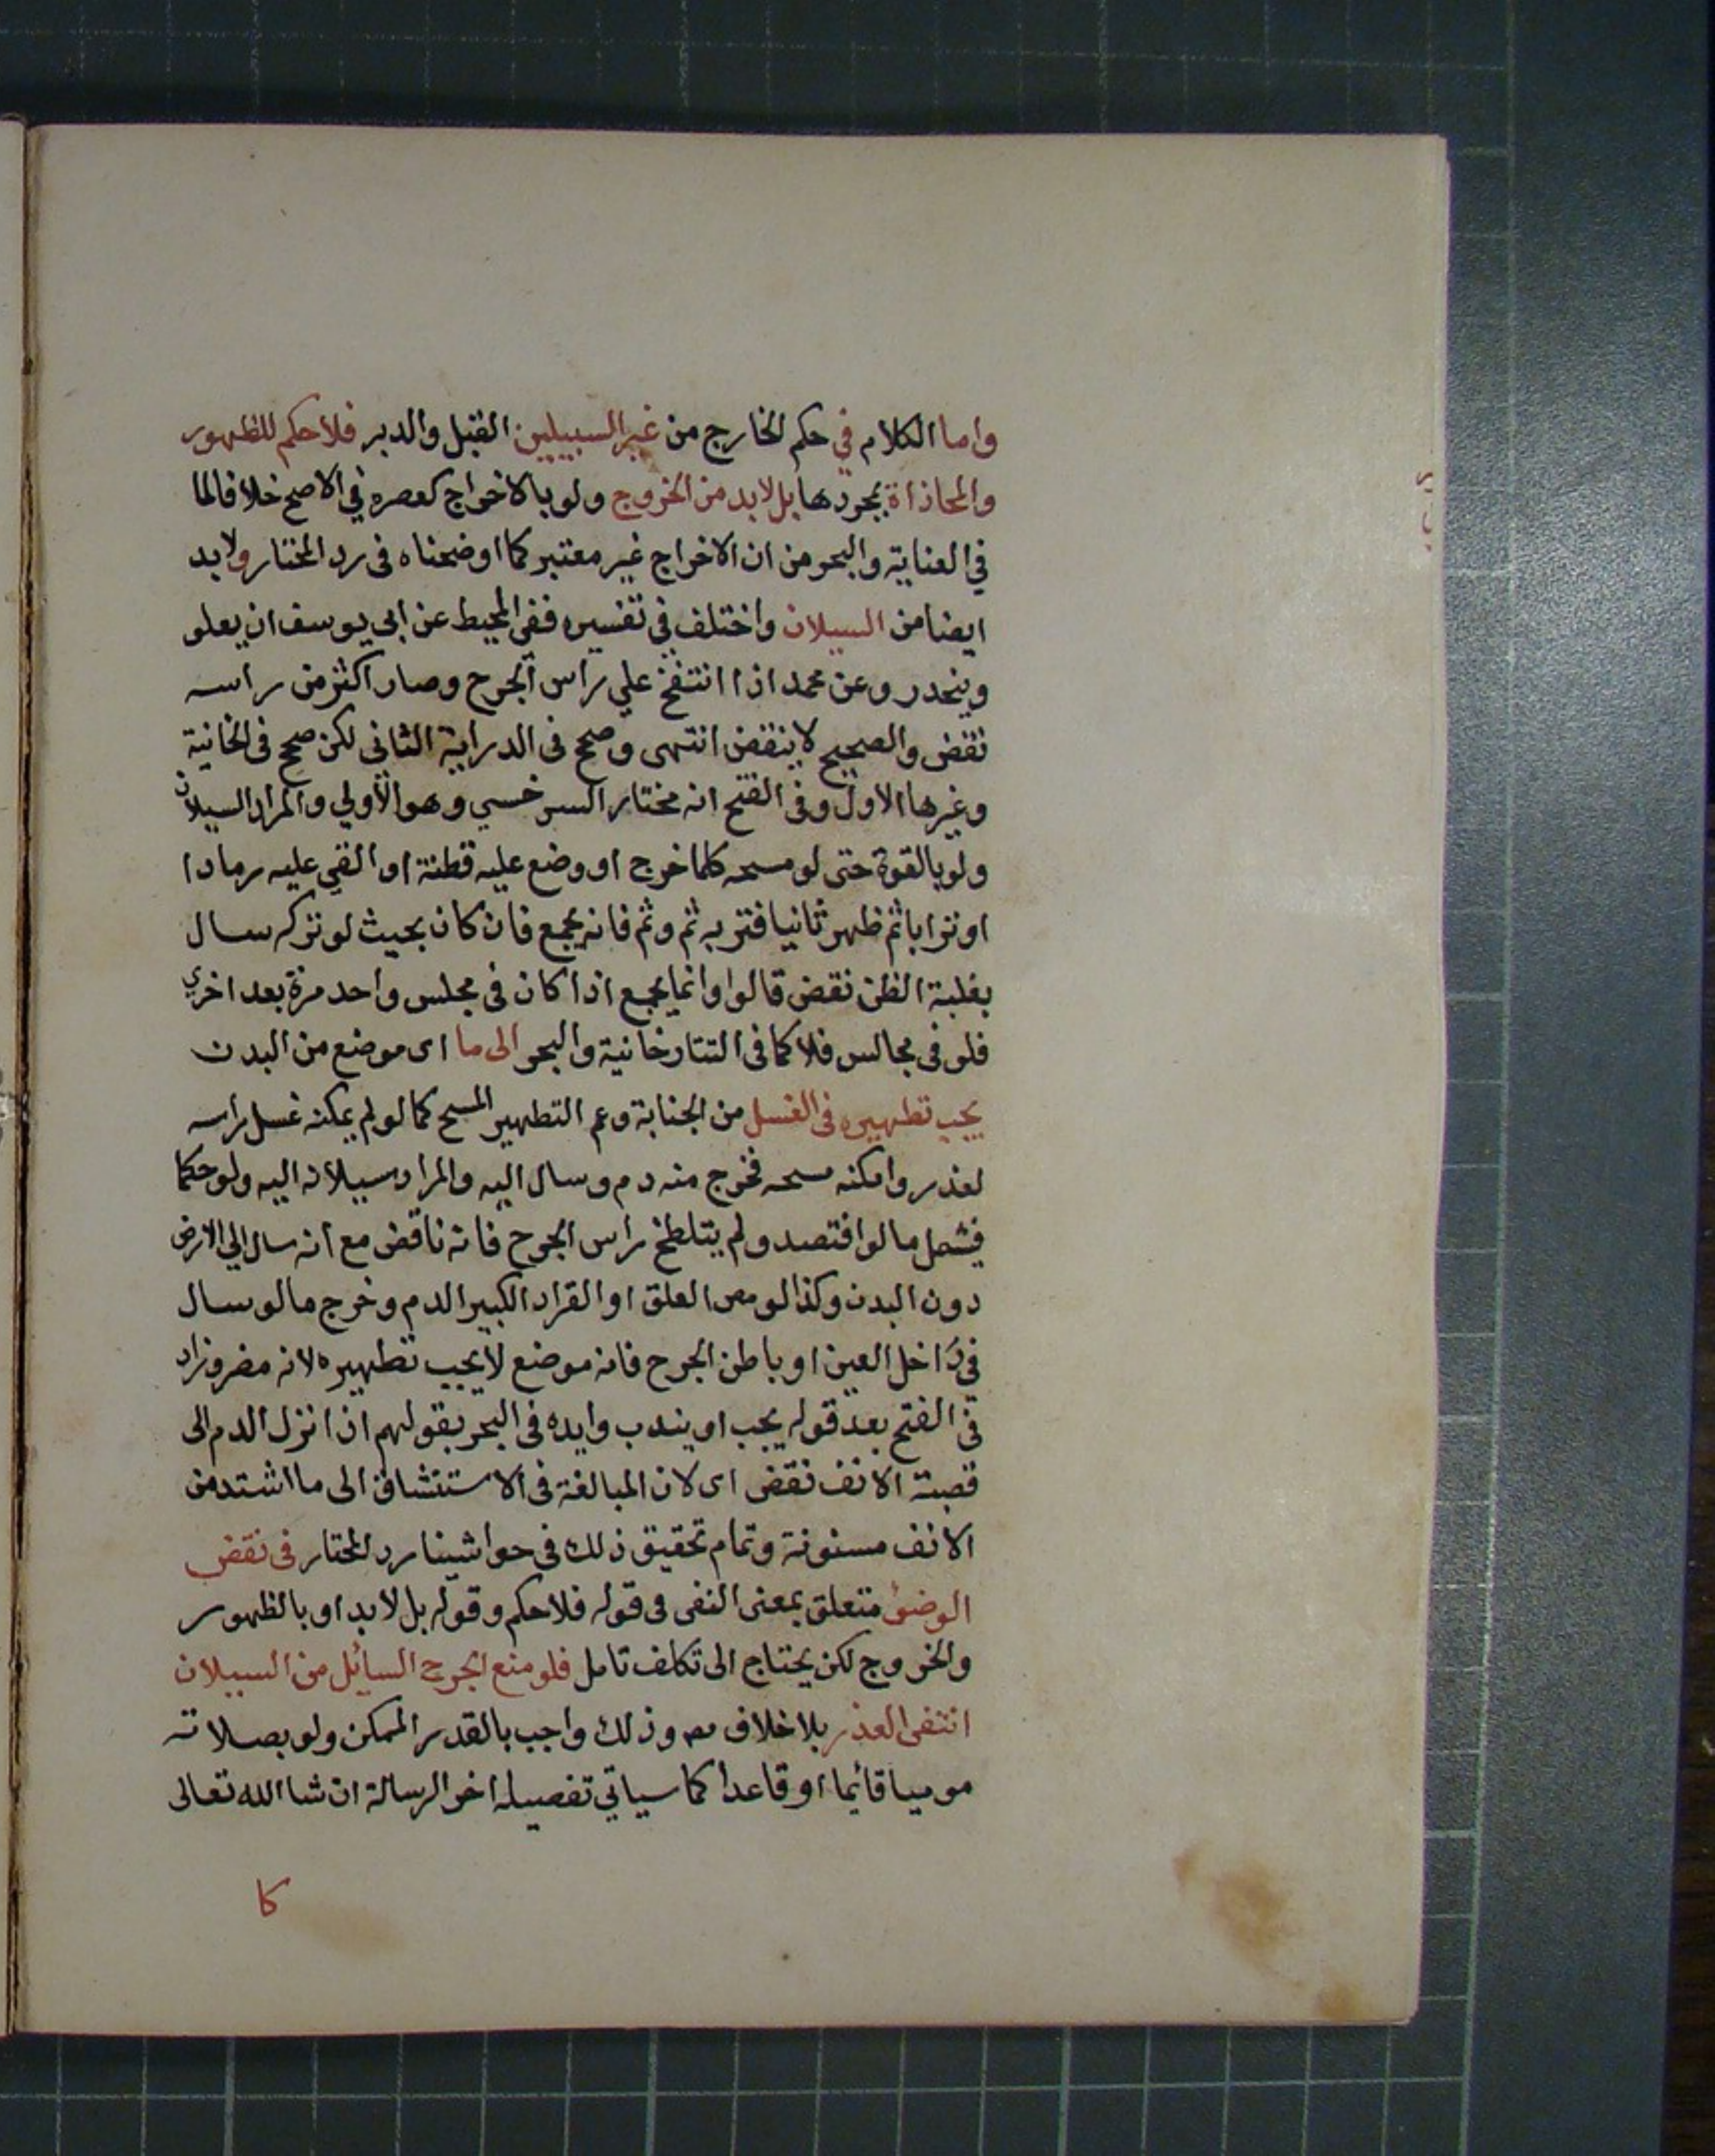 واما الكلام في حكم الخارج من غير السبيلين القبل والدبر فلا حكم للظهور
والمحاذاة بمجردها بل لابد من الخروج ولو بالاخراج كعصره في الاصح خلافا لما
في العناية والبحر من ان الاخراج غير معتبر كما اوضحناه في رد المختار ولابد
ايضا من السيلان واختلف في تفسيره ففي المحيط عن ابي يوسف ان يعلو
وينحدر وعن محمد اذا انتفخ علي راس الجرح وصار اكثر من راسه
نقض والصحيح لا ينقض انتهى وصحح في الدراية الثاني لكن صحح في الخانية
وغيرها الاول وفي الفتح انه مختار السرخسي وهو الأولي والمراد السيلان
ولو بالقوة حتى لو مسحه كلما خرج او وضع عليه قطنة او القي عليه رمادا
او ترابا ثم ظهر ثانيا فتربه ثم وثم فانه يجمع فان كان بحيث لو تركه سال
بغلبة الظن نقض قالوا وانما يجمع اذا كان في مجلس واحد مرة بعد اخري
فلو في مجالس فلا كما في التتارخانية والبحر الى ما اى موضع من البدن
يجب تطهيره في الغسل من الجنابة وعم التطهير المسح كما لو لم يمكنه غسل راسه
لعذر وامكنه مسحه فخرج منه دم وسال اليه والمراد سيلانه اليه ولو حكما
فيشمل ما لو افتصد ولم يتلطخ راس الجرح فانه ناقض مع انه سال الي الارض
دون البدن وكذا لو مص العلق او القراد الكبير الدم وخرج ما لو سال
في داخل العين او باطن الجرح فانه موضع لا يجب تطهيره لانه مضر وزاد
في الفتح بعد قوله يجب او يندب وايده في البحر بقولهم اذا نزل الدم الى
قصبة الانف نقض اى لان المبالغة في الاستنشاق الى ما اشتد من
الانف مسنونة وتمام تحقيق ذلك في حواشينا رد المحتار في نقض
الوضؤ متعلق بمعنى النفى في قوله فلا حكم وقوله بل لابد او بالظهور
والخروج لكن يحتاج الى تكلف تامل فلو منع الجرح السائل من السيلان
انتفى العذر بلا خلاف مص وذلك واجب بالقدر الممكن ولو بصلاته
موميا قائما او قاعدا كما سياتي تفصيله اخر الرسالة ان شا الله تعالى
كا